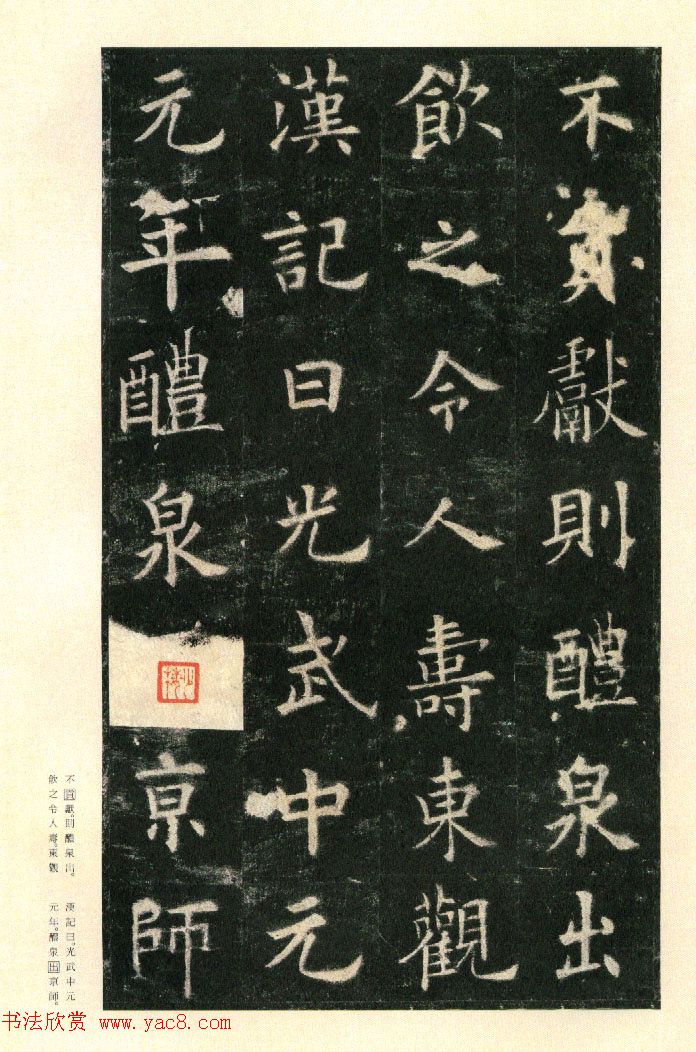 不貢獻則醴泉出
飲之令人壽東觀
漢記曰光武中元
元年醴泉亰師
不貢獻。則醴泉出。
飲之令人壽。東觀
漢記曰。光武中元
元年。醴泉出京師。
书法欣赏 www.yac8.com